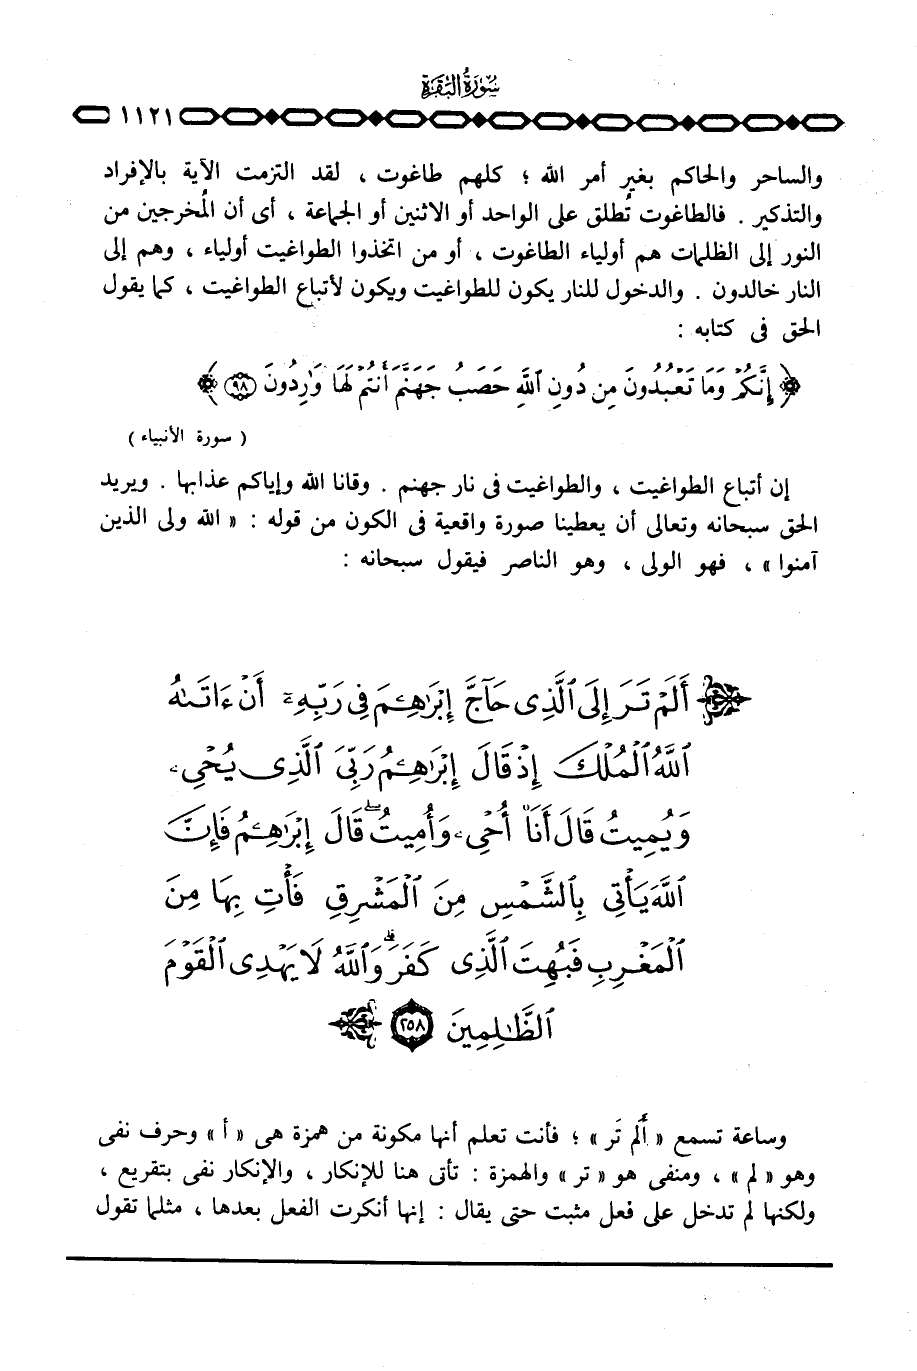 سورة البقرة
١١٢١
والساحر والحاكم بغير أمر الله ؛ كلهم طاغوت ، لقد التزمت الآية بالإفراد
والتذكير . فالطاغوت تُطلق على الواحد أو الاثنين أو الجماعة ، أى أن المُخرجين من
النور إلى الظلمات هم أولياء الطاغوت ، أو من اتخذوا الطواغيت أولياء ، وهم إلى
النار خالدون . والدخول للنار يكون للطواغيت ويكون لأتباع الطواغيت ، كما يقول
الحق فى كتابه :
﴿ إِنَّكُمْ وَمَا تَعْبُدُونَ مِن دُونِ ٱللَّهِ حَصَبُ جَهَنَّمَ أَنتُمْ لَهَا وَٰرِدُونَ ٩٨ ﴾
( سورة الأنبياء )
إن أتباع الطواغيت ، والطواغيت فى نار جهنم . وقانا الله وإياكم عذابها . ويريد
الحق سبحانه وتعالى أن يعطينا صورة واقعية فى الكون من قوله : « الله ولى الذين
آمنوا » ، فهو الولى ، وهو الناصر فيقول سبحانه :
﴿ أَلَمْ تَرَ إِلَى ٱلَّذِى حَآجَّ إِبْرَٰهِـۧمَ فِى رَبِّهِۦٓ أَنْ ءَاتَىٰهُ
ٱللَّهُ ٱلْمُلْكَ إِذْ قَالَ إِبْرَٰهِـۧمُ رَبِّىَ ٱلَّذِى يُحْىِۦ
وَيُمِيتُ قَالَ أَنَا۠ أُحْىِۦ وَأُمِيتُ ۖ قَالَ إِبْرَٰهِـۧمُ فَإِنَّ
ٱللَّهَ يَأْتِى بِٱلشَّمْسِ مِنَ ٱلْمَشْرِقِ فَأْتِ بِهَا مِنَ
ٱلْمَغْرِبِ فَبُهِتَ ٱلَّذِى كَفَرَ ۗ وَٱللَّهُ لَا يَهْدِى ٱلْقَوْمَ
ٱلظَّٰلِمِينَ ٢٥٨ ﴾
وساعة تسمع « أَلم تَر » ؛ فأنت تعلم أنها مكونة من همزة هى « أ » وحرف نفى
وهو « لم » ، ومنفى هو « تر » والهمزة : تأتى هنا للإنكار ، والإنكار نفى بتقريع ،
ولكنها لم تدخل على فعل مثبت حتى يقال : إنها أنكرت الفعل بعدها ، مثلما تقول